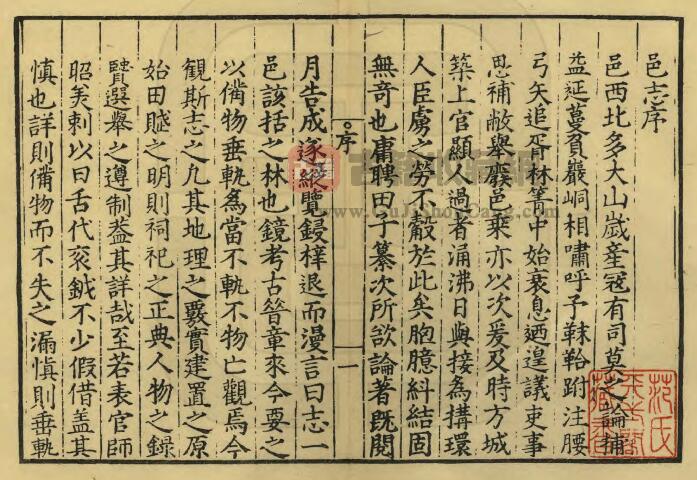 邑志序
邑西北多大山歲產寇有司莫之論補
益延蔓負巖峒相嘯呼予韎韐跗注腰
弓矢追胥林箐中始衰息廼遑議吏事
思補敝舉廢邑乘亦以次爰及時方城
築上官顯人過者涌沸日與接為搆環
人臣虜之勞不觳於此矣胞臆糾結固
無奇也庸聘田子纂次所欲論著既閱
序
一
月告成逐縱覽鋟梓退而漫言曰志一
邑該括之林也鏡考古昝章來今要之
以備物垂軌為當不軌不物亡觀焉今
観斯志之九其地理之覈實建置之原
始田賦之明則祠祀之正典人物之錄
賢選舉之遵制葢其詳哉至若表官師
昭美刺以曰舌代衮鉞不少假借盖其
慎也詳則備物而不失之漏慎則垂軌
范氏
天一閣
藏書
www.GuJiShouCang.com